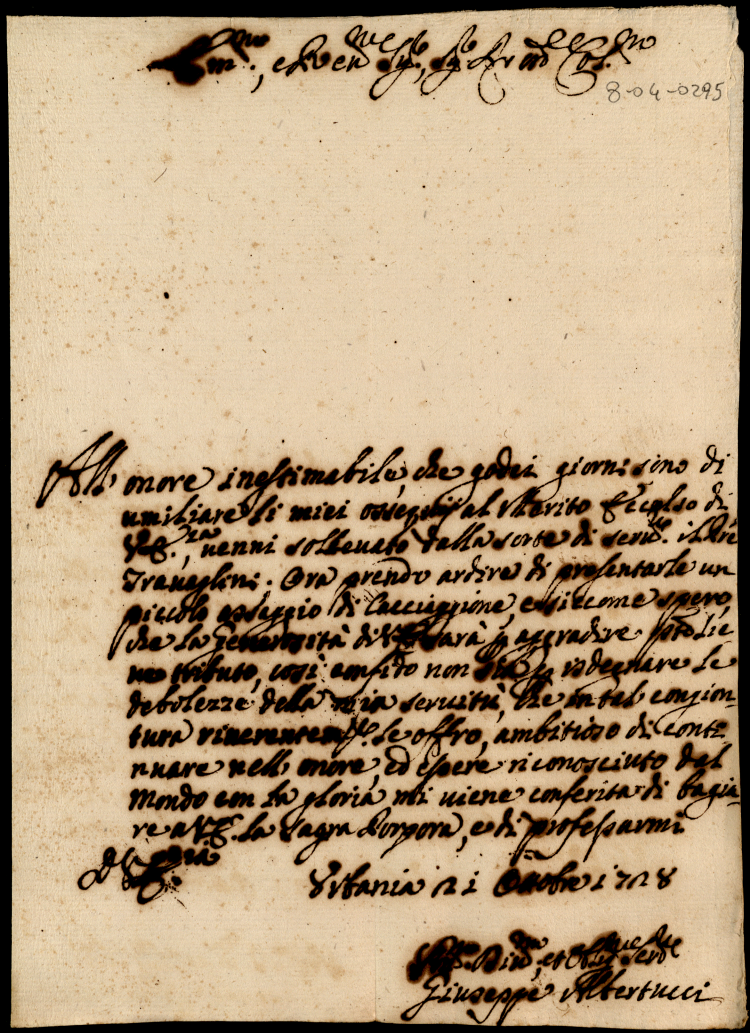 Em.mo, e Rev.en.me Sig.re, Sig.re Pr.on Col.mo
8-04-0295
All' onore inestimabile, che godei giorni sino di
umiliare li miei ossequij al Merito Eccelso di
V.E., venni sollevato dalla sorte di
Traveglini. Ora prendo ardire di presentarle un
piccolo osseggio di Cacciaggione, e siccome spero,
che la generosità di V.E. sarà p aggradire
tributo, così confido non sia p isdegnare le
debolezze della mia servitù, che in tal congion-
tura riverentem.te le offro, ambitioso di conti-
nuare nell' onore, ed essere riconosciuto dal
Mondo con la gloria mi viene conferita di bagia-
re a V.E. la Sagra Porpora, e di professarmi
Di V.E.
Urbania 21 Ottobre 1728
et Obblig.mo Ser.re
Giuseppe Albertucci